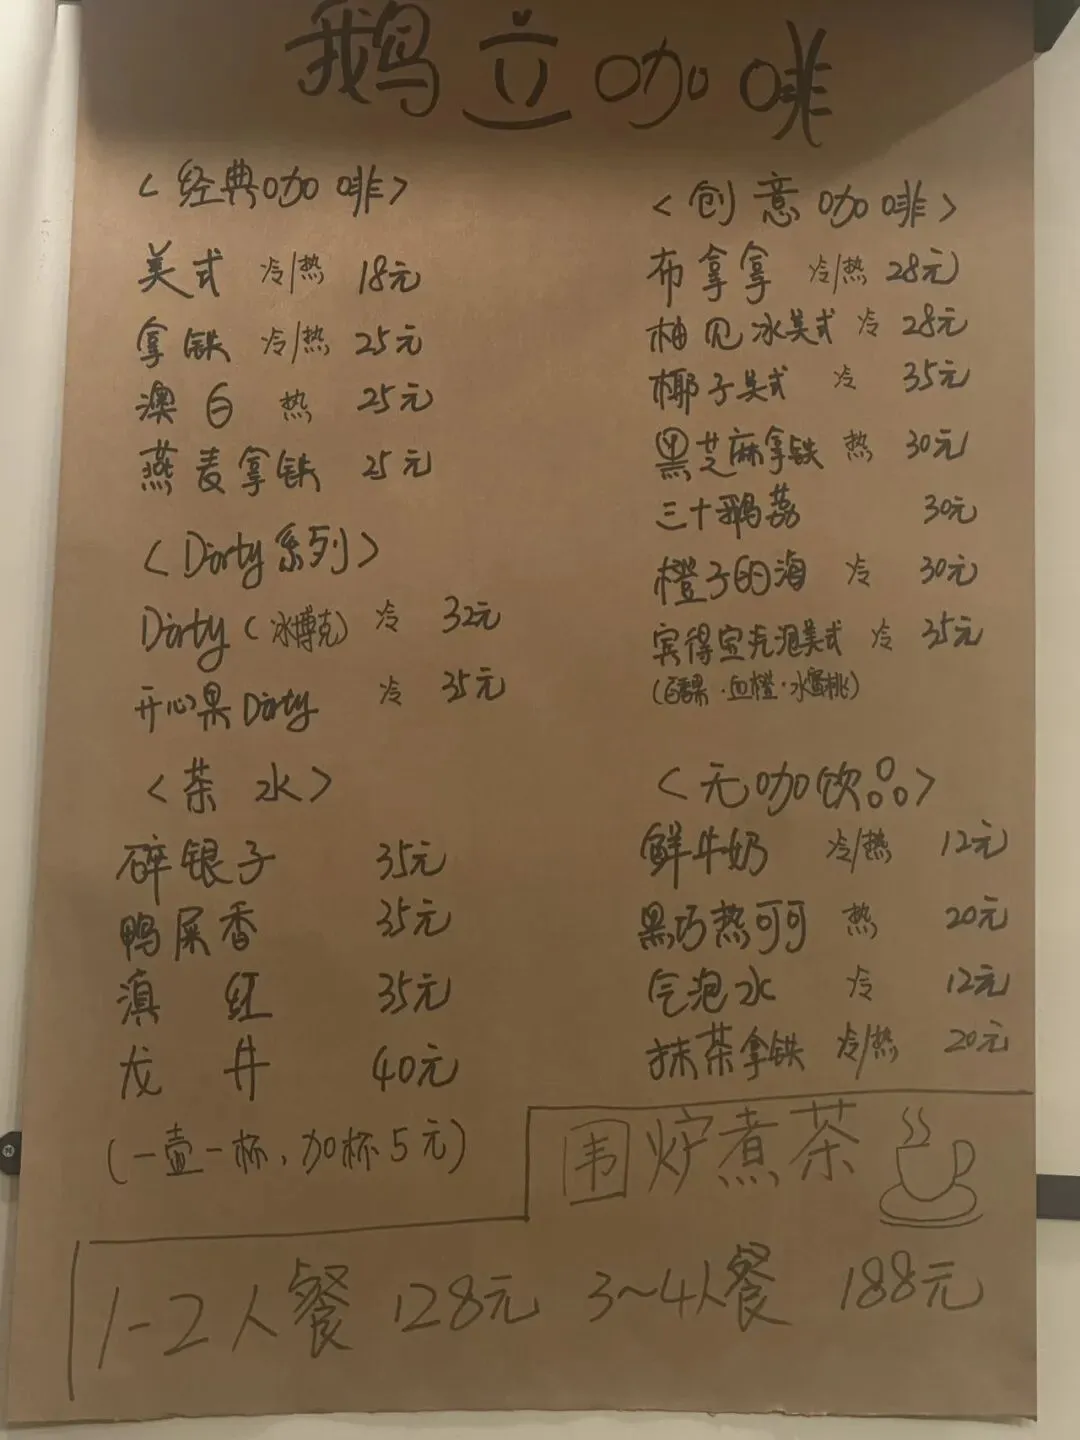 鹅立咖啡
<经典咖啡>
美式 冷/热 18元
拿铁 冷/热 25元
澳白 热 25元
燕麦拿铁 25元
<Dirty系列>
Dirty(冰博克) 冷 32元
开心果Dirty 冷 35元
<茶水>
碎银子 35元
鸭屎香 35元
滇红 35元
龙井 40元
(一壶一杯,加杯5元)
<创意咖啡>
布拿拿 冷/热 28元
柚见冰美式 冷 28元
椰子美式 冷 35元
黑芝麻拿铁 热 30元
三十鹅荔 30元
橙子的海 冷 30元
宾得宝气泡美式 冷 35元
(百香果·血橙·水蜜桃)
<无咖饮品>
鲜牛奶 冷/热 12元
黑巧热可可 热 20元
气泡水 冷 12元
抹茶拿铁 冷/热 20元
围炉煮茶
1-2人餐 128元 3~4人餐 188元